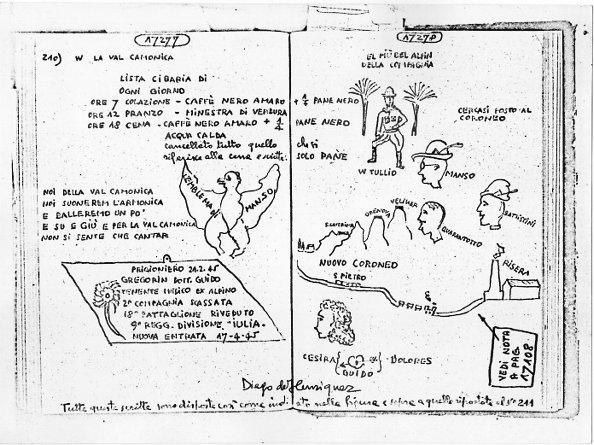 17277
210) W LA VAL CAMONICA
LISTA CIBARIA DI
OGNI GIORNO
ORE 7 COLAZIONE - CAFFÈ NERO AMARO
ORE 12 PRANZO - MINESTRA DI VERDURA
ORE 18 CENA - CAFFÈ NERO AMARO + 1/4
ACQUA CALDA
cancellato tutto quello
riferisce alla cena esiste:
NOI DELLA VAL CAMONICA
NOI SUONEREM L'ARMONICA
E BALLEREMO UN PO'
E SU E GIÙ E PER LA VAL CAMONICA
NON SI SENTE CHE CANTAR
L'EMBLEMA DI MANSO
PRIGIONIERO 24.2.45
GREGORIN DOTT. GUIDO
TENENTE MEDICO EX ALPINO
2ª COMPAGNIA SCASSATA
18º BATTAGLIONE RIVEDUTO
9º REGG. DIVISIONE "IULIA"
NUOVA ENTRATA 17-4-45
17278
EL PIÙ BEL ALPIN
DELLA COMPAGNIA
+ 1/4 PANE NERO
PANE NERO
che si
SOLO PANE
W TULLIO
CERCASI POSTO AL
CORONEO
MANSO
BATTISTINI
S. CATERINA
GENOVA
VELIKAR
QUARANTOTTO
NUOVO CORONEO
S. PIETRO
RISERA
CESIRA
GUIDO
DOLORES
VEDI NOTA
A PAG.
17108
Diego de Henriquez
Tutte queste scritte sono disposte così come indicato nella figura e sopra a quello riportate al nº 211